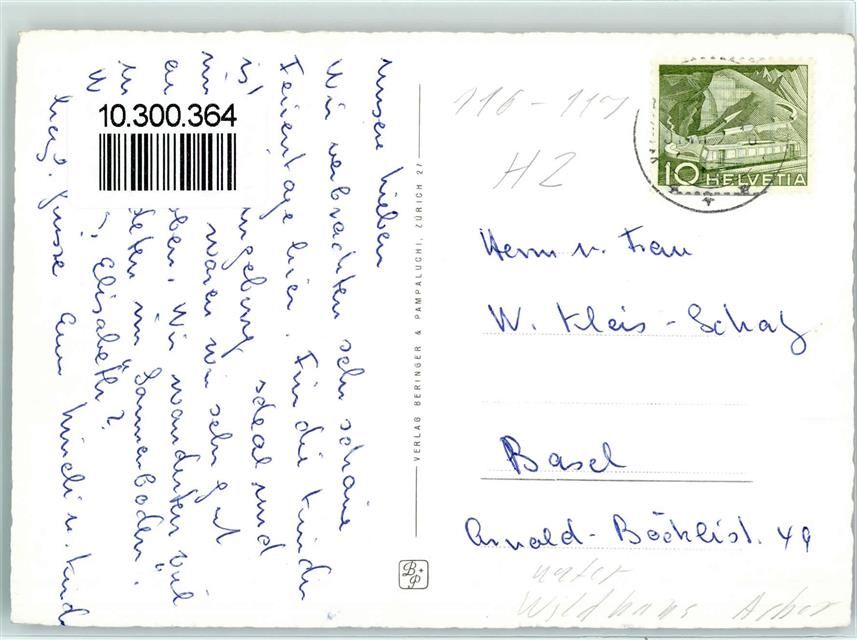 Unsere Lieben
Wir verbrachten sehr schöne
Ferientage hier. Für die Kinder
ist ngebung ideal und
wir waren wir sehr gut
ben. Wir wanderten viel
deten im Sonnenboden.
Elisabeth?
Herzl. Grüsse Eure u. Kinder
10.300.364
VERLAG BERINGER & PAMPALUCHI, ZÜRICH 27
B+P
116-117
HZ
10 HELVETIA
Herrn u. Frau
W. Kleis-Schaf
Basel
Arnold-Böcklist. 49
unter
Wildhaus